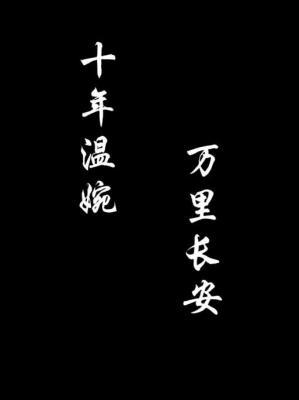 十年温婉
万里长安